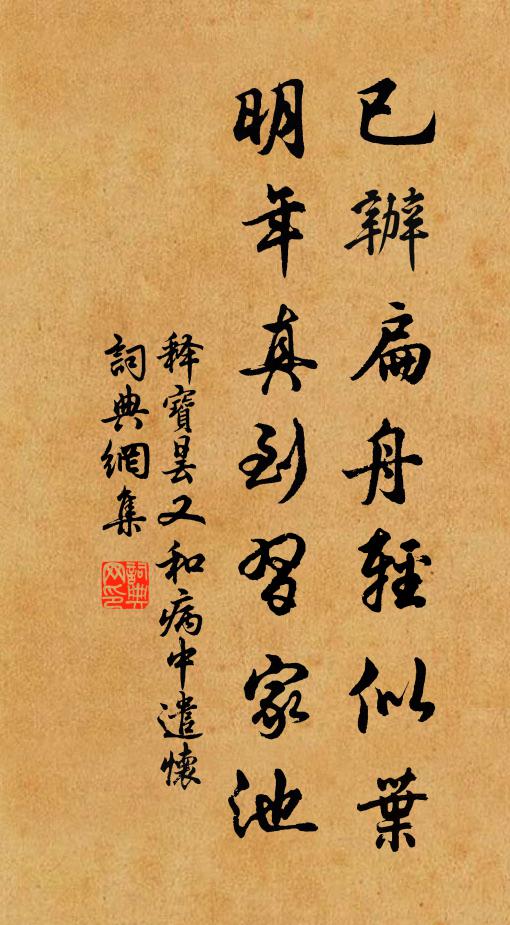 已辦扁舟輕似葉
明年真到習家池
釋寶曇又和病中遣懷
詞典網集
詞典网印